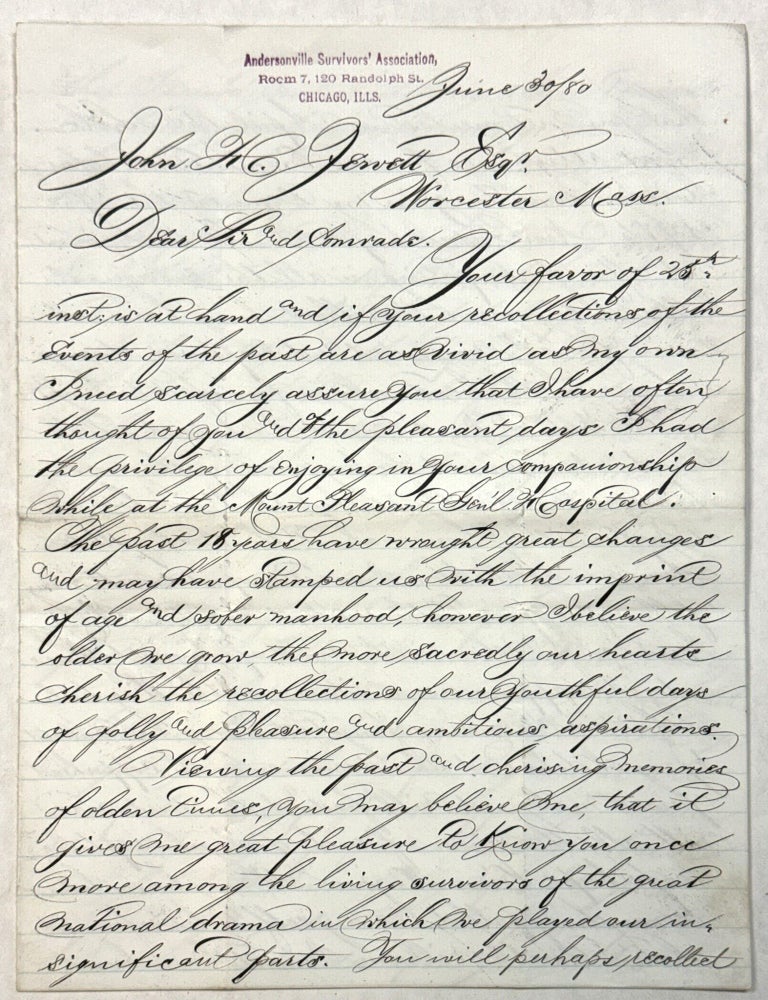 Andersonville Survivors' Association,
Room 7, 120 Randolph St.
CHICAGO, ILLS.
June 30/80
John H. Jewett Esqr.
Worcester Mass.
Dear Sir and Comrade.
Your favor of 25th
inst: is at hand and if your recollections of the
Events of the past are as vivid as my own
I need scarcely assure you that I have often
thought of you and of the pleasant days I had
the privilege of enjoying in your companionship
while at the Mount Pleasant Gen'l Hospital.
The past 18 years have wrought great changes
and may have stamped us with the imprint
of age and sober manhood, however I believe the
older we grow, the more sacredly our hearts
cherish the recollections of our youthful days
of folly and pleasure and ambitious aspirations.
Viewing the past and cherising memories
of olden times, you may believe me, that it
gives me great pleasure to know you once
more among the living survivors of the great
national drama in which we played our in-
significant parts. You will perhaps recollect